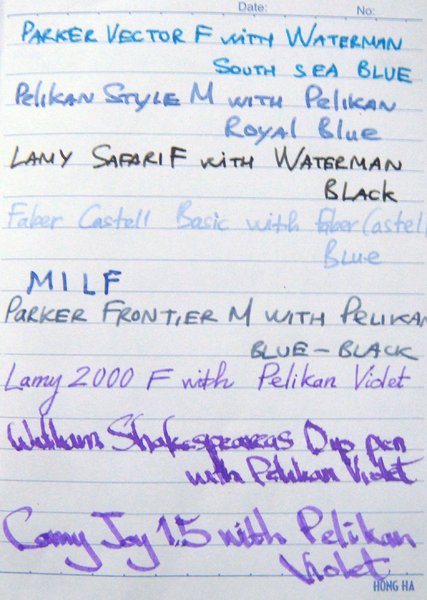 Date: No:
PARKER VECTOR F with WATERMAN
SOUTH SEA BLUE
Pelikan STYLE M with Pelikan
Royal Blue
LAMY SAFARI F with WATERMAN
BLACK
Faber Castell Basic with Faber Castell
Blue
MILF
PARKER FRONTIER M WITH PELIKAN
BLUE-BLACK
Lamy 2000 F with Pelikan Violet
Williams Shakespeareas Dip pen
with Pelikan Violet
Lamy Joy 1.5 with Pelikan
Violet
HONG HA